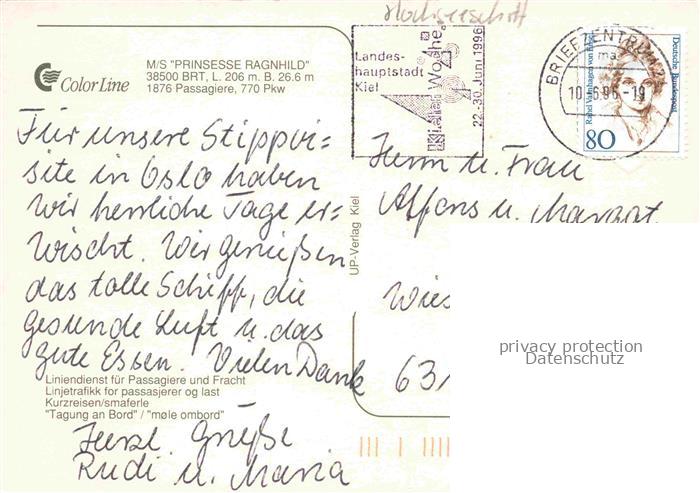 Hochseeschiff
Color Line
M/S "PRINSESSE RAGNHILD"
38500 BRT, L. 206 m. B. 26.6 m
1876 Passagiere, 770 Pkw
Landes-
hauptstadt
Kiel
Kieler Woche
22.-30. Juni 1996
BRIEFZENTRUM 24
ma
10.-6.96-19
Deutsche Bundespost
Rahel Varnhagen von Ense
80
Für unsere Stippvi=
site in Oslo haben
wir herrliche Tage er=
wischt. Wir genießen
das tolle Schiff, die
gesunde Luft u. das
gute Essen. Vielen Dank
Liniendienst für Passagiere und Fracht
Linjetrafikk for passasjerer og last
Kurzreisen/smaferle
"Tagung an Bord" / "møle ombord"
Herzl. Grüße
Rudi u. Maria
UP-Verlag Kiel
Herrn u. Frau
Alfons u. Margot
Wies
63
privacy protection
Datenschutz